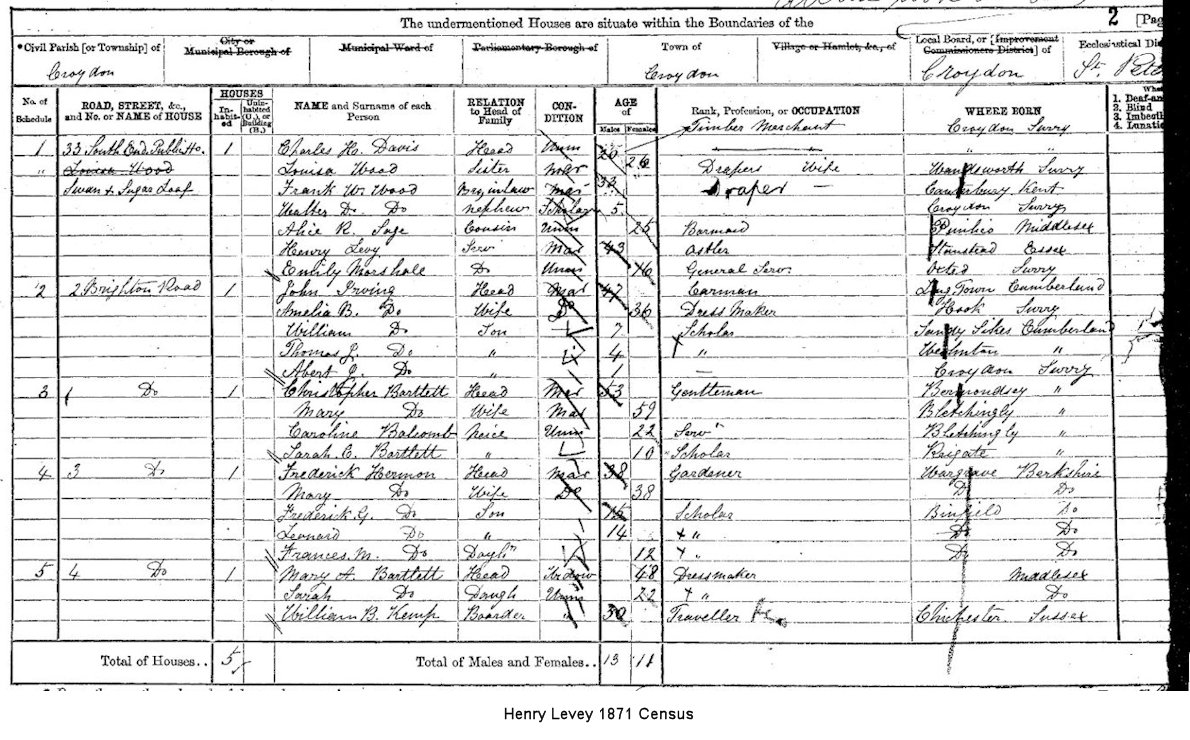 The undermentioned Houses are situate within the Boundaries of the
2 [Pag
*Civil Parish [or Township] of City or Municipal Borough of Municipal Ward of Parliamentary Borough of Town of Village or Hamlet, &c., of Local Board, or [Improvement Commissioners District] of Ecclesiastical Dis
Croydon Croydon Croydon St. Pete
No. of Schedule ROAD, STREET, &c., and No. or NAME of HOUSE HOUSES Inhabited Uninhabited (U.), or Building (B.) NAME and Surname of each Person RELATION to Head of Family CONDITION AGE of Males Females Rank, Profession, or OCCUPATION WHERE BORN Whe 1. Deaf-an 2. Blind 3. Imbecile 4. Lunatic
Timber Merchant Croydon Surry
1 33 South End Public Ho. 1 Charles H. Davis Head Unm 20 " "
" Louisa Wood Louisa Wood Sister Mar 26 Drapers Wife Wandsworth Surry
Swan & Sugar Loaf Frank W. Wood Bro. in law Mar 33 Draper — Canterbury Kent
Walter D. Do Nephew Scholar 5 Croydon Surry
Alice R. Sage Cousin Unm 25 Barmaid Pimlio Middlesex
Henry Levy Serv Mar 43 Ostler Stanstead Essex
Emily Marshall Do Unm 16 General Serv. Octed Surry
2 2 Brighton Road 1 John Irving Head Mar 47 Carman Long Town Cumberland
Amelia B. Do Wife Do 36 Dress Maker Hook Surry
William Do Son 7 Scholar Sandy Sikes Cumberland
Thomas J. Do " 4 " "
Abert J. Do " 1 — Croydon Surry
3 1 Do 1 Christopher Bartlett Head Mar 53 Gentleman Bermondsey "
Mary Do Wife Mar 59 Bletchingly "
Caroline Balcomb Neice Unm 22 Serv" Bletchingly "
Sarah C. Bartlett " 10 Scholar Reigate "
4 3 Do 1 Frederick Hermon Head Mar 38 Gardener Wargrave Berkshire
Mary Do Wife Do 38 Do Do
Frederick G. Do Son 15 Scholar Binfield Do
Leonard Do " 14 " Do Do
Frances M. Do Daghr 12 " Do Do
5 4 Do 1 Mary A. Bartlett Head Widow 48 Dressmaker Middlesex
Sarah Do Daugh Unm 22 " Do
William B. Kemp Boarder " 30 Traveller Chichester Sussex
Total of Houses.. 5 Total of Males and Females.. 13 11
Henry Levey 1871 Census